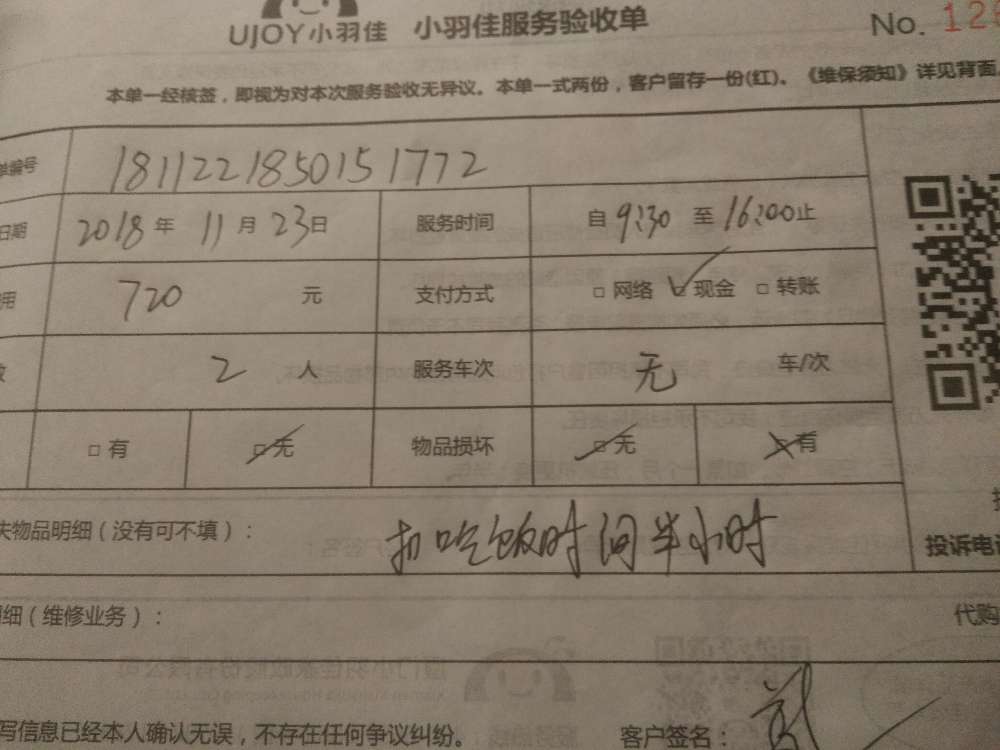 UJOY小羽佳 小羽佳服务验收单 No. 12
本单一经核签，即视为对本次服务验收无异议。本单一式两份，客户留存一份(红)。《维保须知》详见背面
单编号 1811221850151772
日期 2018年 11月 23日 服务时间 自 9:30 至 16:00止
用 720 元 支付方式 □ 网络 ☑ 现金 □ 转账
数 2 人 服务车次 无 车/次
□ 有 □ 无 物品损坏 □ 无 □ 有
失物品明细（没有可不填）： 扣吃饭时间半小时
投诉电话
明细（维修业务）： 代购
写信息已经本人确认无误，不存在任何争议纠纷。 客户签名：